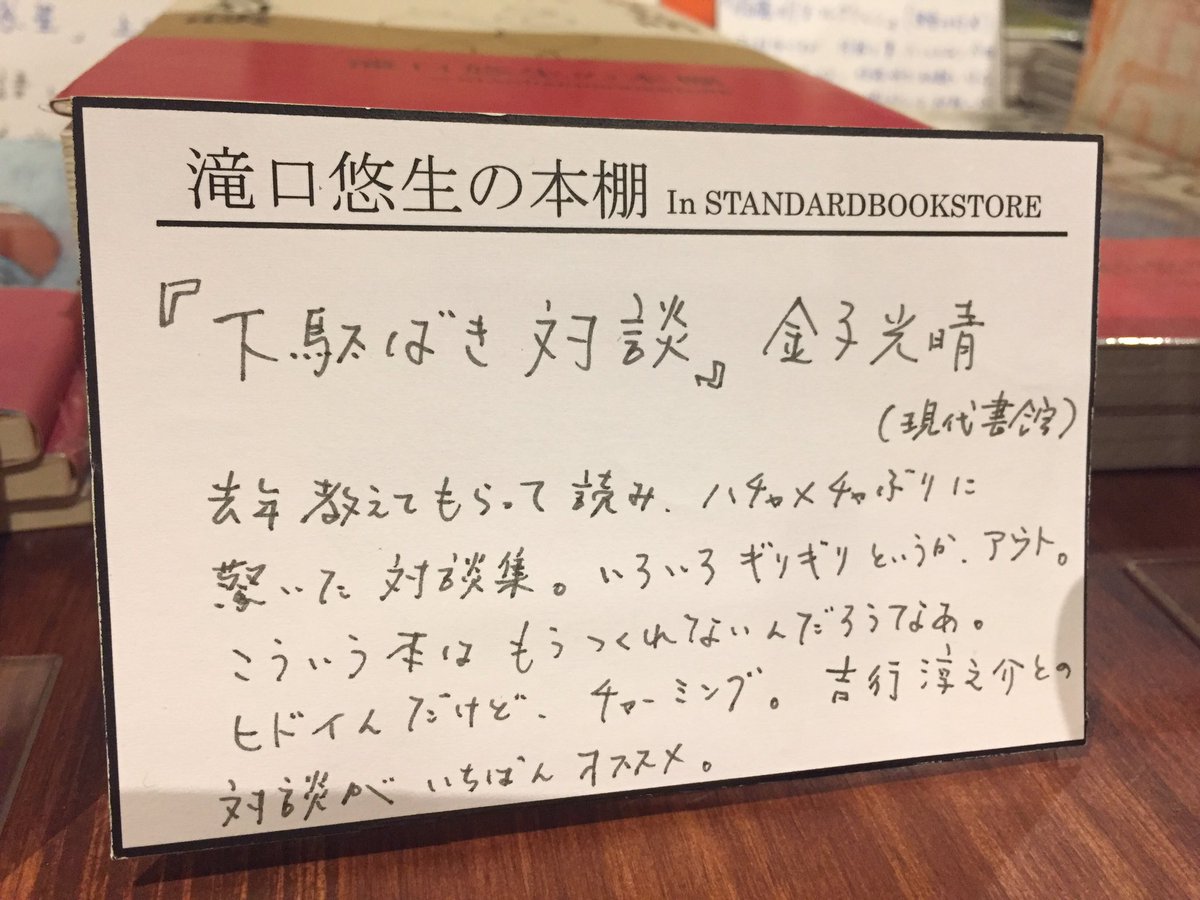 滝口悠生の本棚 In STANDARDBOOKSTORE
『下駄ばき対談』 金子光晴
(現代書館)
去年教えてもらって読み、ハチャメチャぶりに
驚いた対談集。いろいろギリギリというか、アウト。
こういう本はもうつくれてないんだろうなあ。
ヒドイんだけど、チャーミング。吉行淳之介との
対談がいちばんオススメ。